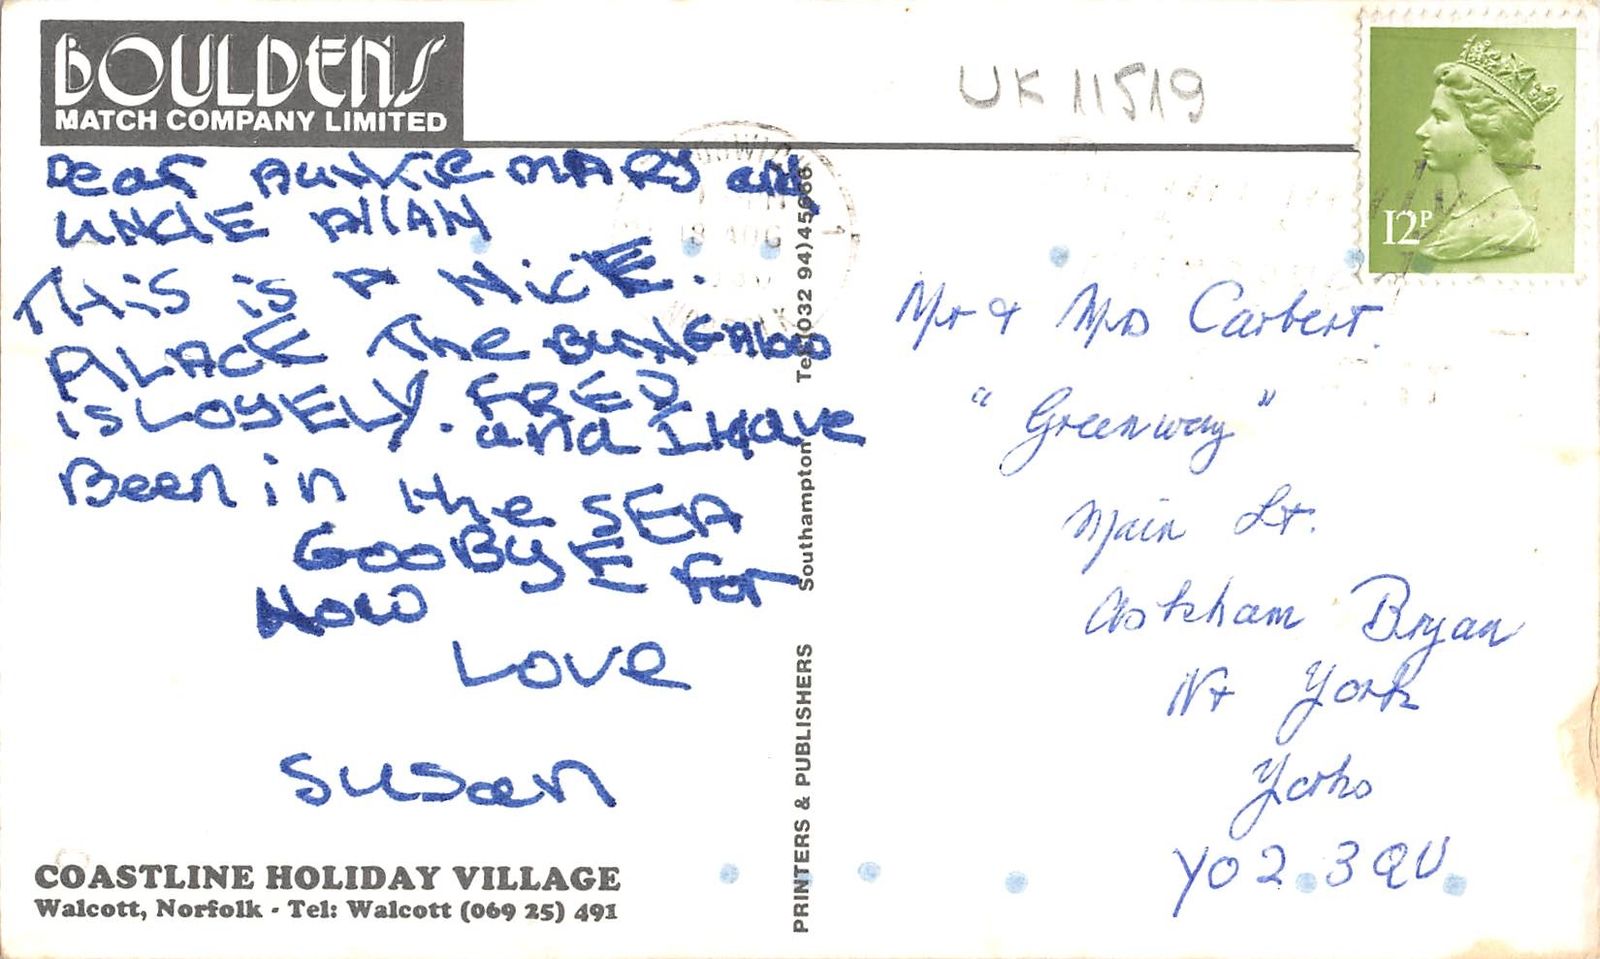 BOULDENS
MATCH COMPANY LIMITED
UK 11519
Dear AUNTIE MARY and
UNCLE AllAN
THiS iS A NiCE.
PLACE The BUNGAlow
iS LOVELY. FRED
and I Have
Been in the SEA
GOOBYE For
Now
Love
Susan
COASTLINE HOLIDAY VILLAGE
Walcott, Norfolk - Tel: Walcott (069 25) 491
PRINTERS & PUBLISHERS Southampton Tel (032 94)
18 AUG
12P
Mr & Mrs Carbert.
"Greenway"
Main St.
Askham Bryan
Nr York
Yorks
YO2 3QU